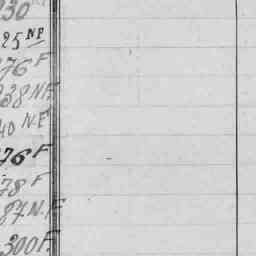 230
25 NF
76 F
38 N.F.
40 N.F
76 F
78 F
87 N.F
300 F.